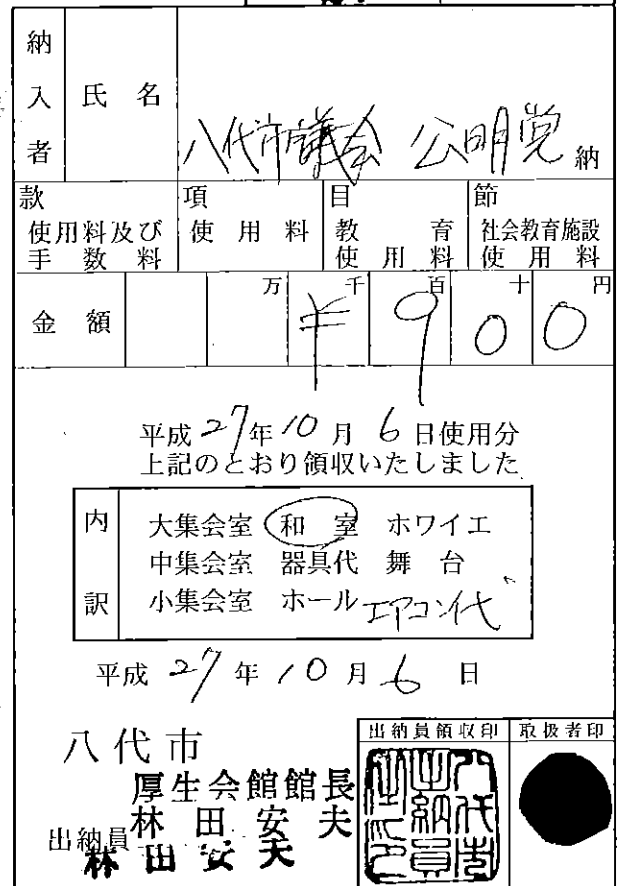 納入者 氏名 八代市議会 公明党 納
款 項 目 節
使用料及び手数料 使用料 教育使用料 社会教育施設使用料
万 千 百 十 円
金額 ¥900
平成27年10月6日使用分
上記のとおり領収いたしました
内訳
大集会室 和室 ホワイエ
中集会室 器具代 舞台
小集会室 ホール エアコン代
平成27年10月6日
出納員領収印 取扱者印
八代市
厚生会館館長
林田安夫
出納員
林田安夫